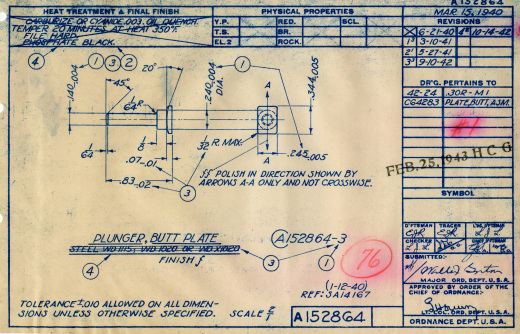 A152864
HEAT TREATMENT & FINAL FINISH
PHYSICAL PROPERTIES
MAR 15, 1940
CARBURIZE OR CYANIDE .003, OIL QUENCH.
TEMPER 20 MINUTES AT HEAT 350°.
FILE HARD
PHOSPHATE BLACK.
Y.P. RED. SCL.
T.S. BR.
EL 2 ROCK.
REVISIONS
X 6-21-40 4⁴ 10-14-42
1² 3-10-41
2¹ 5-27-41
3³ 9-10-42
4
1 3 2
1
DR'G. PERTAINS TO
42-24 .30R-M1
C64283 PLATE, BUTT, ASM.
#1
FEB. 25, 1943 H C G
SYMBOL
45°
20°
.140-.004
1/64 R
.240-.004 DIA.
A
A
.344-.005
1/64
1/8
1/32 R. MAX.
.245-.005
.07-.01
.83-.02
3
ff POLISH IN DIRECTION SHOWN BY
ARROWS A-A ONLY AND NOT CROSSWISE.
PLUNGER, BUTT PLATE
A152864-3
STEEL WD 1115, WD 1020 OR WD X1020
FINISH f
4
3
1
76
(1-12-40)
REF: SA14167
TOLERANCE ±.010 ALLOWED ON ALL DIMEN-
SIONS UNLESS OTHERWISE SPECIFIED.
SCALE 2/1
A152864
D'FTSMAN TRACER
CHECKER
SUBMITTED:-
MAJOR ORD. DEPT. U.S.A.
APPROVED BY ORDER OF THE
CHIEF OF ORDNANCE:-
LT. COL. ORD. DEPT. U.S.A.
ORDNANCE DEPT. U.S.A.